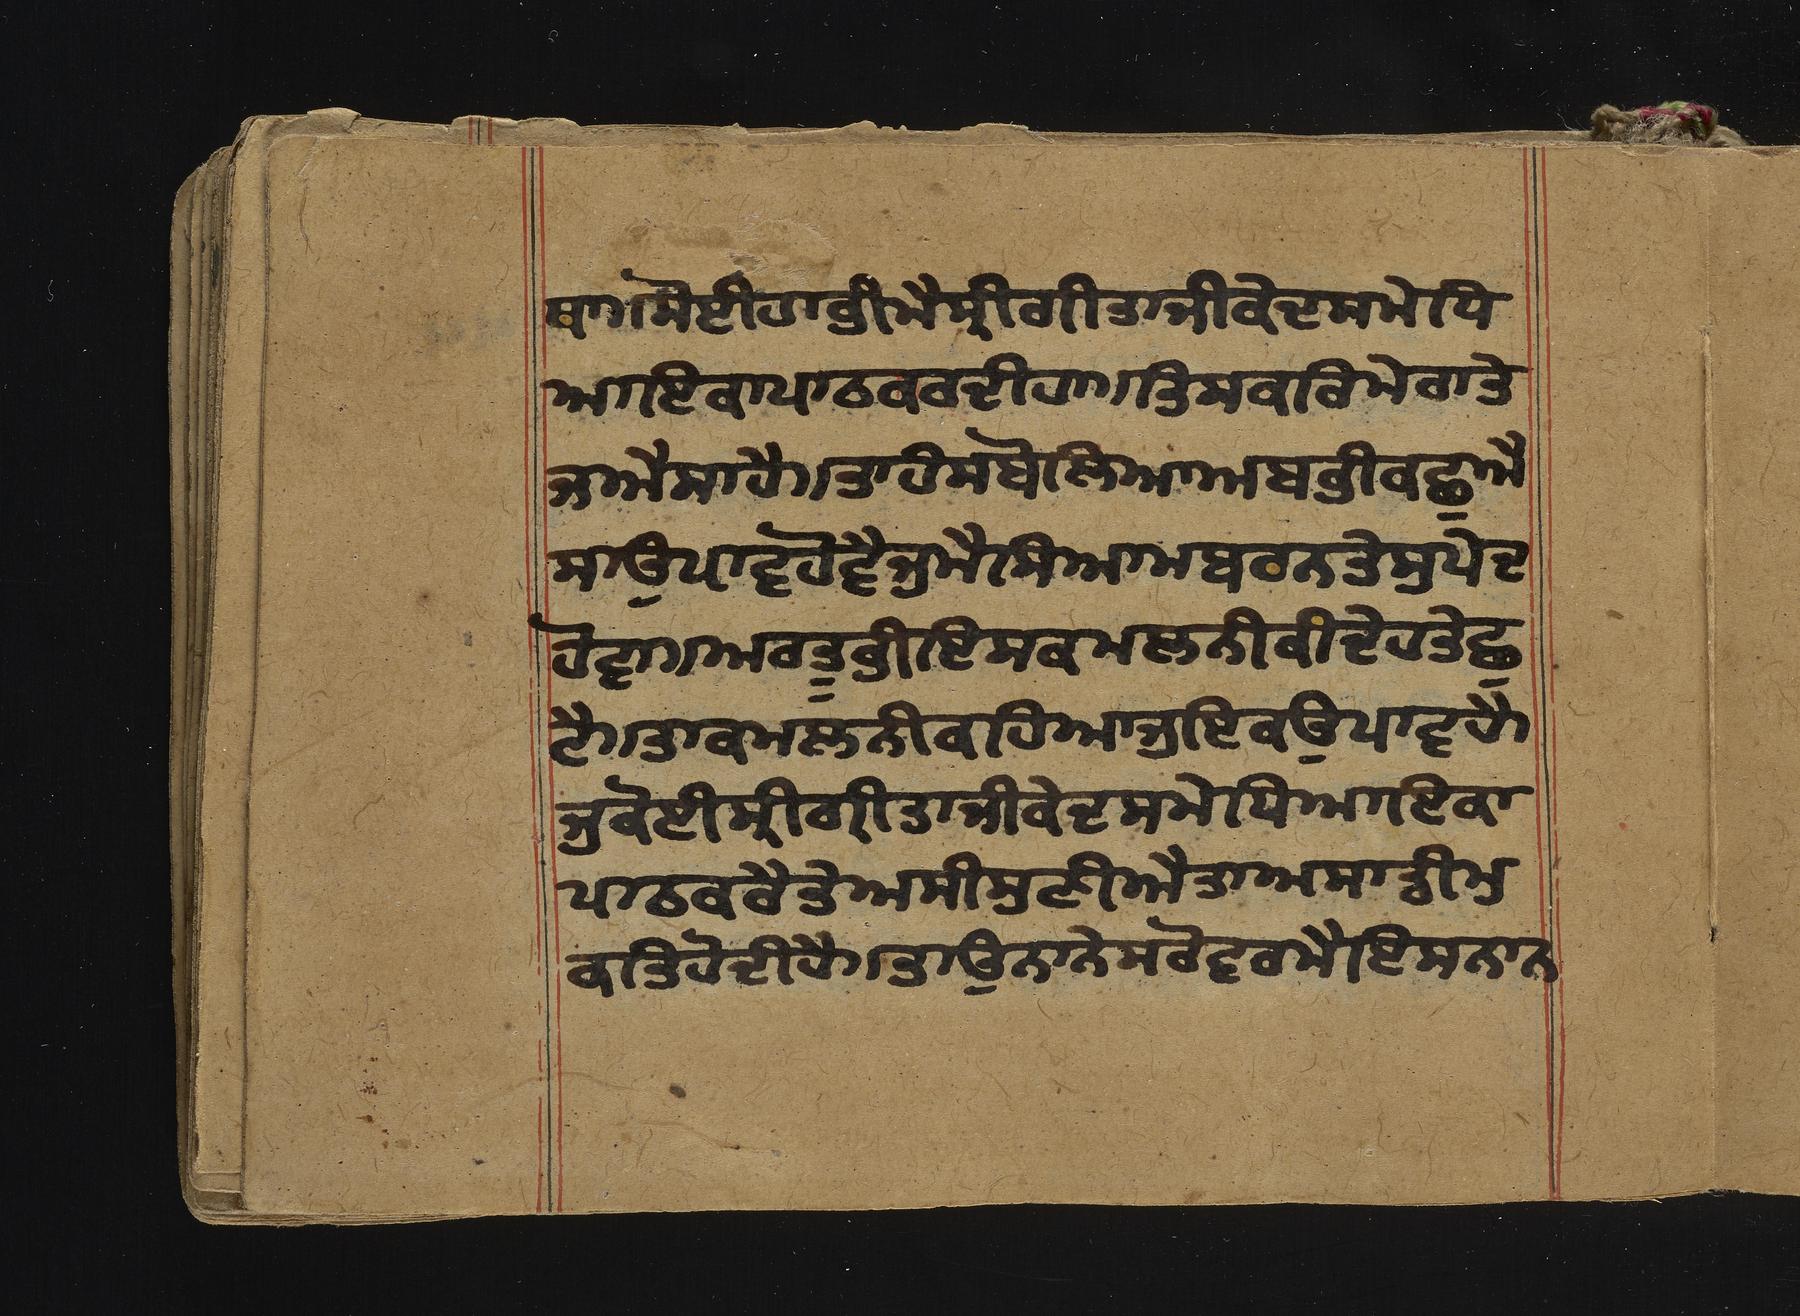 ਥਾ॥ਸੋਈਹਾਭੀਮੈਸ੍ਰੀਗੀਤਾਜੀਕੇਦਸਮੇਧਿ
ਆਇਕਾਪਾਠਕਰਦੀਹਾ॥ਤਿਸਕਰਿਮੇਰਾਤੇ
ਜਐਸਾਹੈ॥ਤਾਹੰਸਬੋਲਿਆਅਬਭੀਕਛੁਐ
ਸਾਉਪਾਵਹੋਵੈਜੁਮੈਸਿਆਮਬਰਨਤੇਸੁਪੇਦ
ਹੋਵਾ॥ਅਰਤੂਭੀਇਸਕਮਲਨੀਕੀਦੇਹਤੇਛੁ
ਟੈ॥ਤਾਕਮਲਨੀਕਹਿਆਜੁਇਕਉਪਾਵਹੈ
ਜੁਕੋਈਸ੍ਰੀਗੀਤਾਜੀਕੇਦਸਮੇਧਿਆਇਕਾ
ਪਾਠਕਰੈਤੇਅਸੀਸੁਣੀਐਤਾਅਸਾਡੀਮੁ
ਕਤਿਹੋਦੀਹੈ॥ਤਾਉਨਾਨੇਸਰੋਵਰਮੈਇਸਨਾਨ